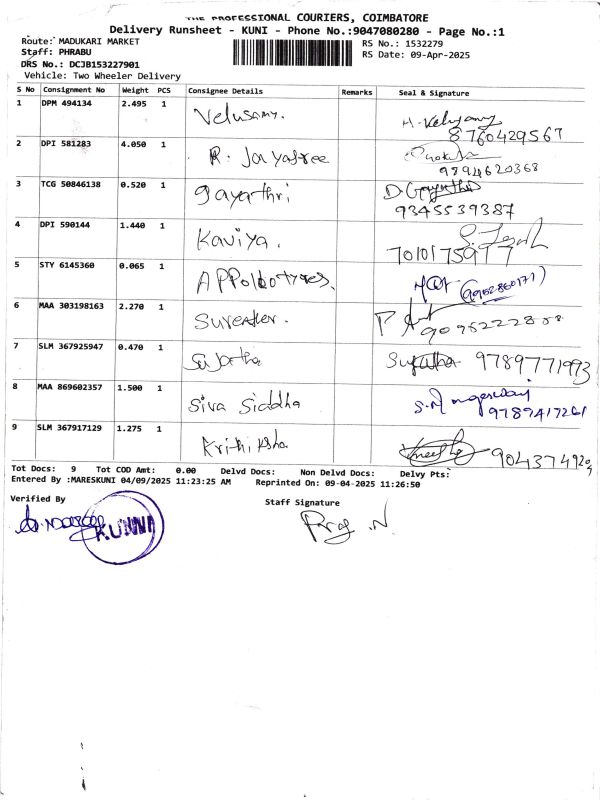 THE PROFESSIONAL COURIERS, COIMBATORE
Delivery Runsheet - KUNI - Phone No.:9047080280 - Page No.:1
Route: MADUKARI MARKET
RS No.: 1532279
Staff: PHRABU
RS Date: 09-Apr-2025
DRS No.: DCJB153227901
Vehicle: Two Wheeler Delivery
S No Consignment No Weight PCS Consignee Details Remarks Seal & Signature
1 DPM 494134 2.495 1 Velusamy.
8760429567
2 DPI 581283 4.050 1 R. Jayasree
9894620368
3 TCG 50846138 0.520 1 gayathri
9345539387
4 DPI 590144 1.440 1 Kaviya.
7010175977
5 STY 6145360 0.065 1
6 MAA 303198163 2.270 1
7 SLM 367925947 0.470 1 Sujatha 9789771993
8 MAA 869602357 1.500 1 Siva Siddha
9789417261
9 SLM 367917129 1.275 1
Tot Docs: 9 Tot COD Amt: 0.00 Delvd Docs: Non Delvd Docs: Delvy Pts:
Entered By :MARESKUNI 04/09/2025 11:23:25 AM Reprinted On: 09-04-2025 11:26:50
Verified By
Staff Signature
KUNNI